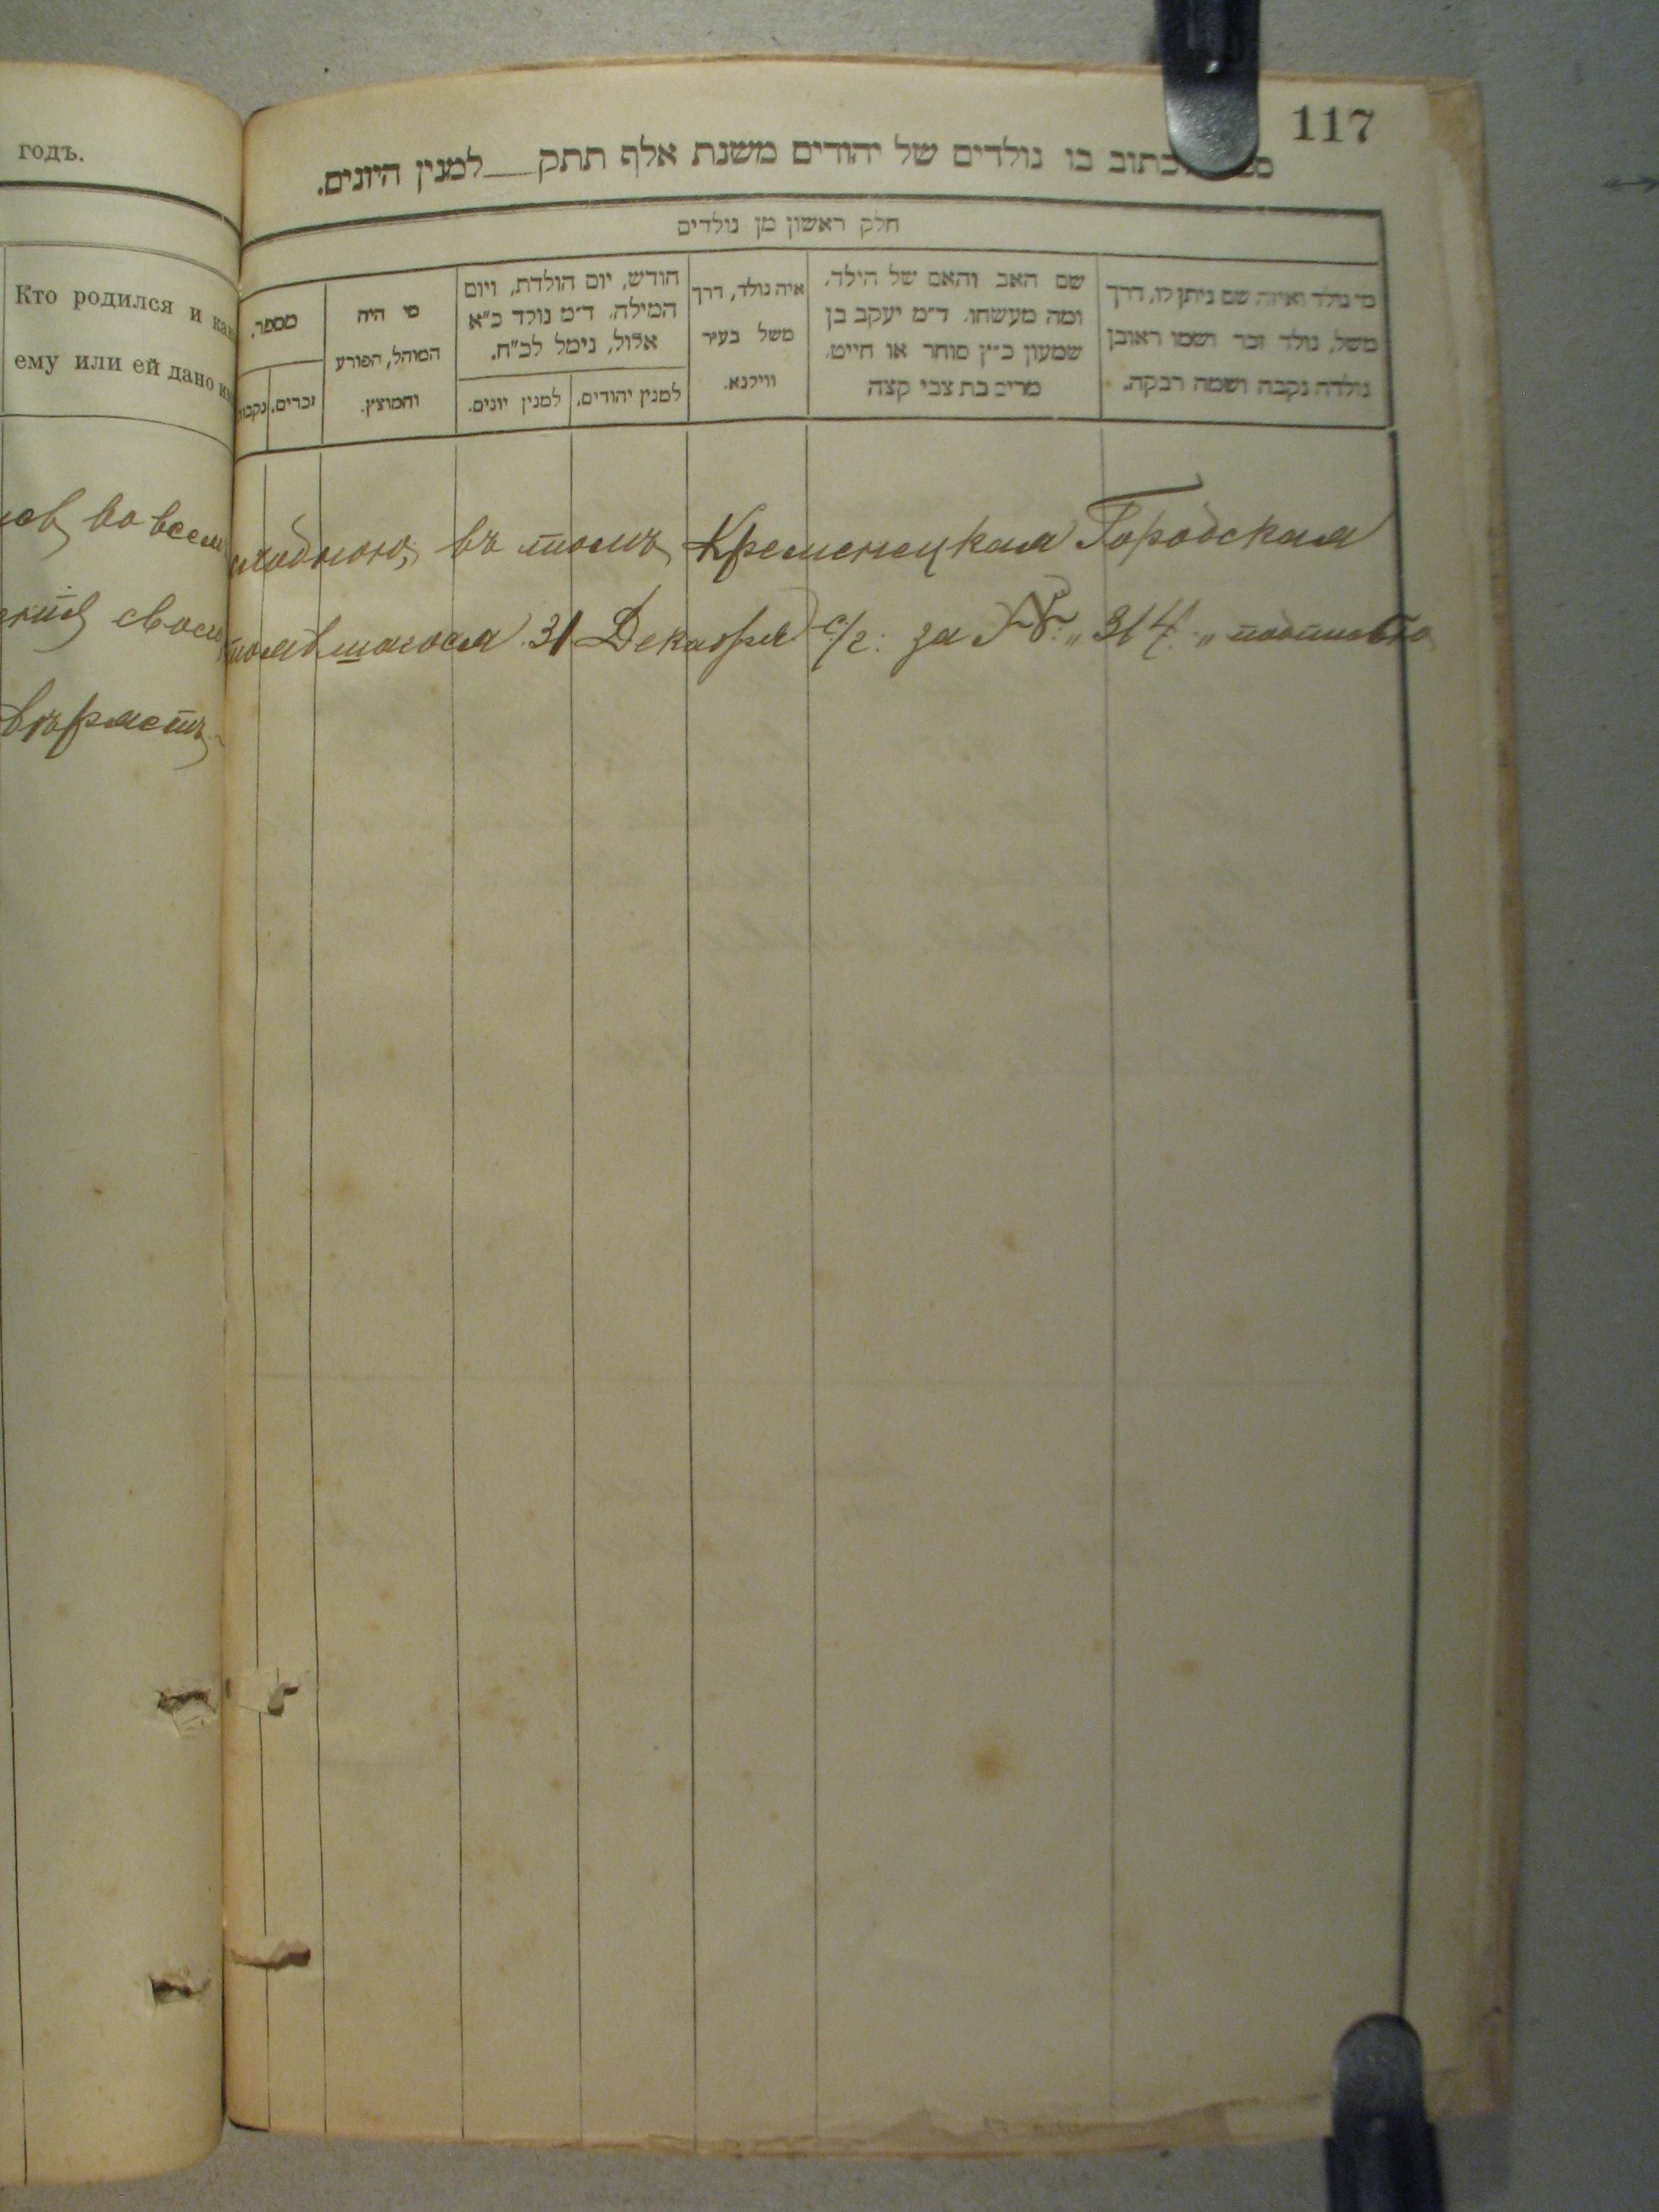 годъ.
Кто родился и
ему или ей дано
во всем
117
כתוב בו נולדים של יהודים משנת אלף תתק__למנין היונים.
חלק ראשון מן נולדים
מי נולד ואיזה שם ניתן לו, דרך
משל, נולד זכר ושמו ראובן
נולדה נקבה ושמה רבקה.
שם האב והאם של הילד,
ומה מעשהו. ד״מ יעקב בן
שמעון כ״ץ סוחר או חייט,
מרים בת צבי קצה
איה נולד, דרך
משל בעיר
ווילנא.
חודש, יום הולדת, ויום
המילה. ד״מ נולד כ״א
אלול, נימל לכ״ח.
למנין יהודים.
למנין יונים.
מי היה
המוהל, הפורע
והמוצץ.
מספר.
זכרים.
въ томъ Кременецкая Городская
31 Декабря с/г: за № „314.„ подписью